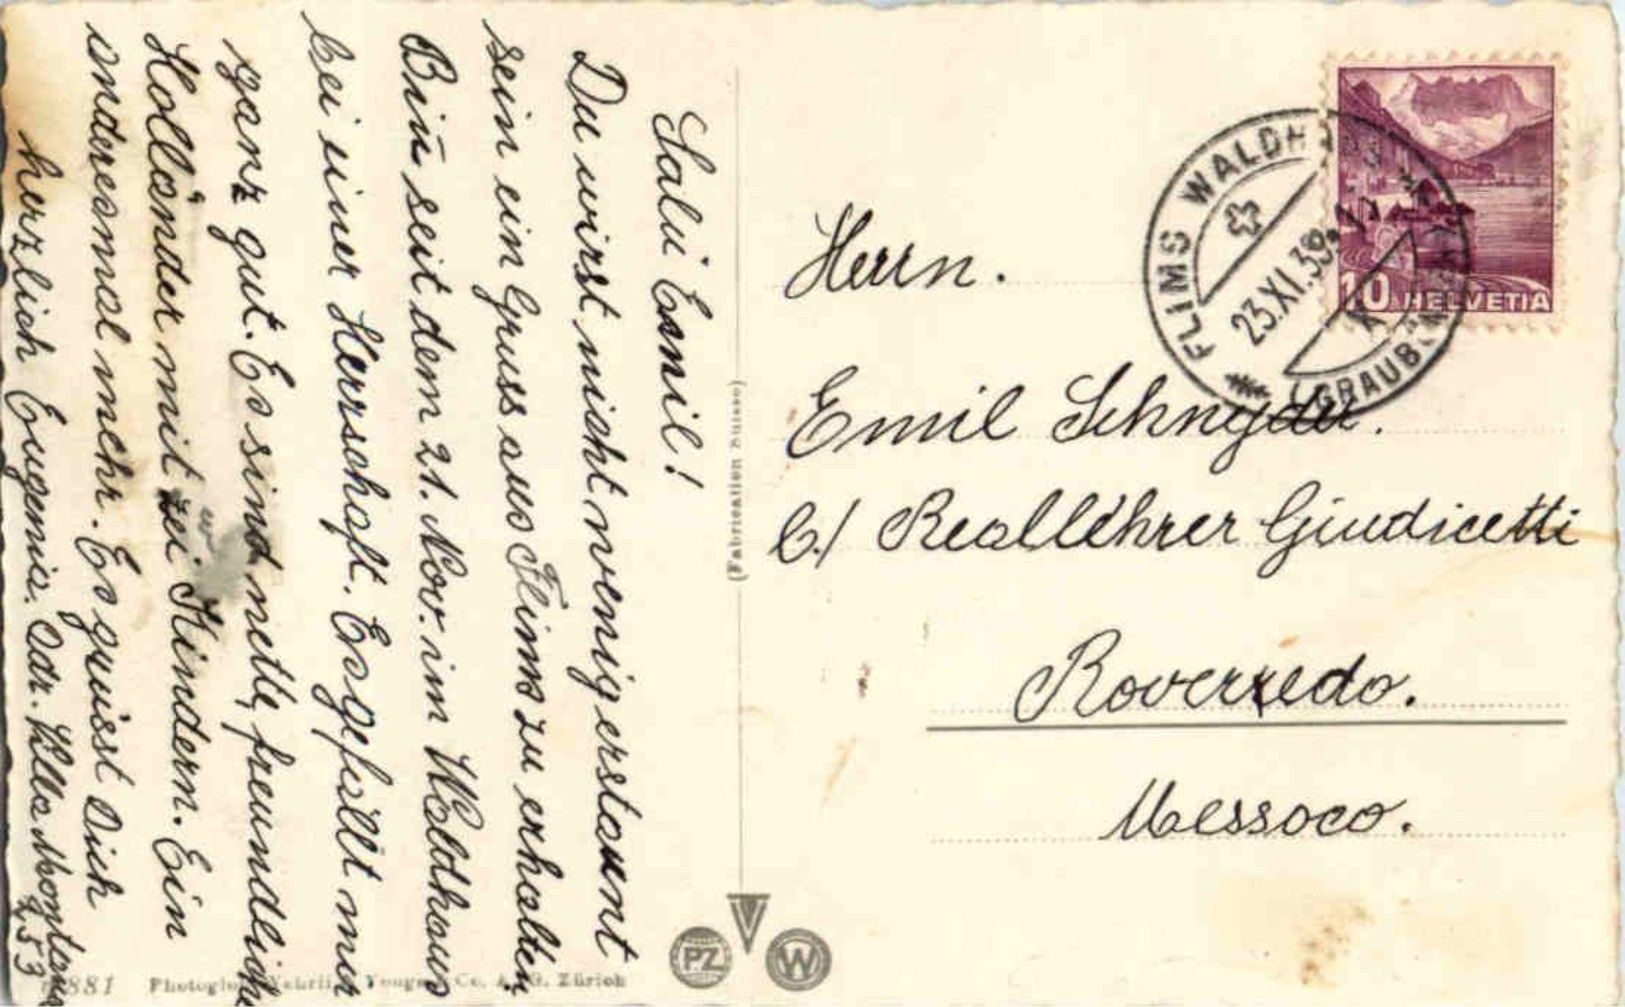 Salü Emil!
Du wirst nicht wenig erstaunt
sein ein Gruss aus Flims zu erhalten
Bin seit dem 21. Nov. im Waldhaus
bei einer Herrschaft. Es gefällt mir
ganz gut. Es sind nette, freundliche
Holländer mit zwei Kindern. Ein
anderesmal mehr. Es grüsst Dich
herzlich Eugenia. Adr. Villa Montana
Z. 53
(Fabrication Suisse)
FLIMS WALDHAUS
23.XI.38.
(GRAUB
10 HELVETIA
Herrn.
Emil Schnyder.
b./ Reallehrer Giudicetti
Roveredo.
Messoco.
PZ W
881 Photoglob-Wehrli Co. A. G. Zürich